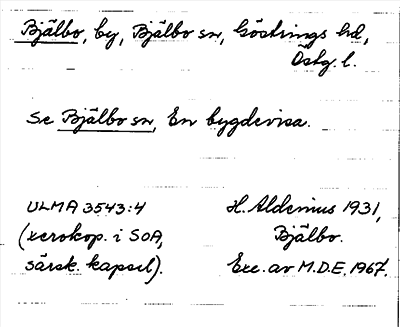 Bjälbo, by, Bjälbo sn, Göstrings hd,
Östg. l.
Se Bjälbo sn, En bygdevisa.
ULMA 3543:4
(xerokop. i SOA,
särsk. kapsel).
H. Aldemius 1931,
Bjälbo.
Exc. av M.D.E. 1967.